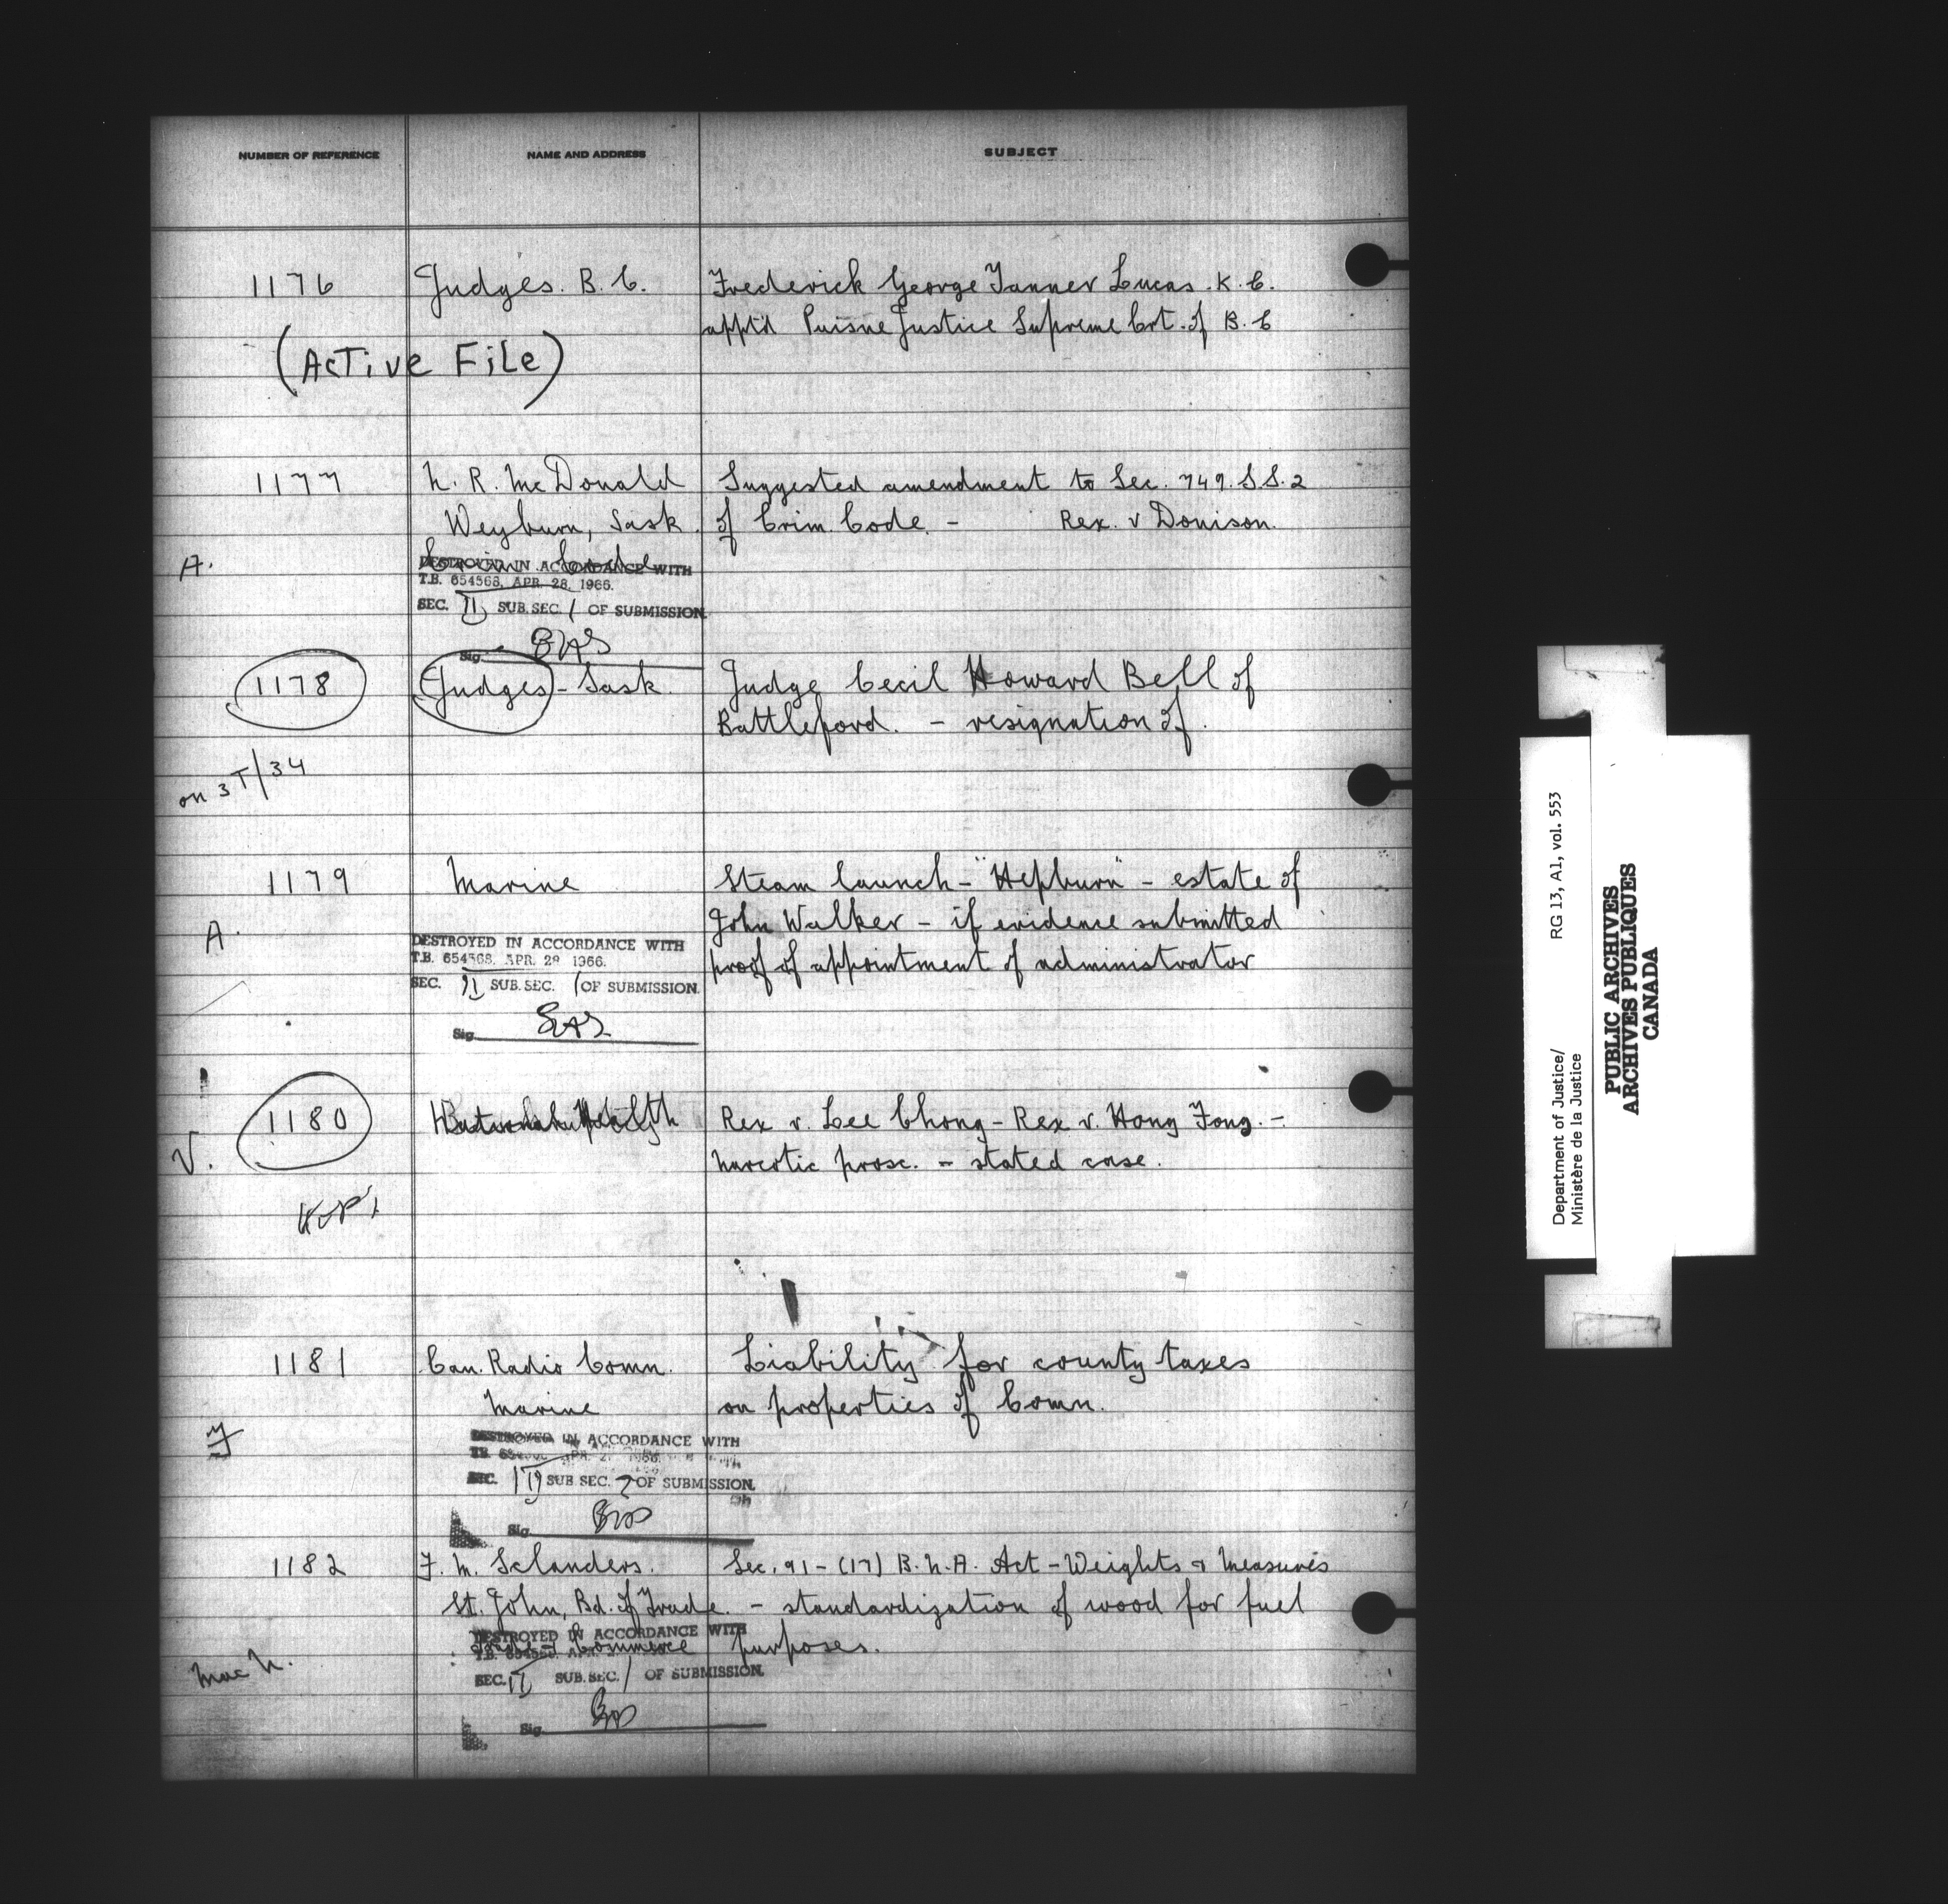 NUMBER OF REFERENCE NAME AND ADDRESS SUBJECT
1176 Judges. B. C. Frederick George Tanner Lucas. K. C.
apptd Puisne Justice Supreme Crt. of B. C
(Active File)
1177 N. R. McDonald Suggested amendment to Sec. 749. S.S. 2
Weyburn, Sask. of Crim. Code. - Rex. v Donison.
A.
DESTROYED IN ACCORDANCE WITH
T.B. 654568, APR. 28, 1966.
SEC. II SUB. SEC. 1 OF SUBMISSION.
Sig.
1178 Judges - Sask. Judge Cecil Howard Bell of
Battleford. - resignation of.
on 3T/34
1179 Marine Steam launch - "Hepburn" - estate of
A. John Walker - if evidence submitted
proof of appointment of administrator
DESTROYED IN ACCORDANCE WITH
T.B. 654568, APR. 28 1966.
SEC. II SUB. SEC. 1 OF SUBMISSION.
Sig.
1180 Rex v. Lee Chong - Rex v. Hong Fong. -
V. narcotic prosc. - stated case.
1181 Can. Radio Comn. Liability for county taxes
Marine on properties of Comn.
DESTROYED IN ACCORDANCE WITH
SEC. SUB. SEC. 2 OF SUBMISSION.
Sig.
1182 F. M. Sclanders. Sec. 91 - (17) B. N. A. Act - Weights & Measures
St. John, Bd. of Trade. - standardization of wood for fuel
Commerce purposes.
DESTROYED IN ACCORDANCE WITH
Mac N.
SEC. II SUB. SEC. 1 OF SUBMISSION.
Sig.
RG 13, A1, vol. 553
Department of Justice/
Ministère de la Justice
PUBLIC ARCHIVES
ARCHIVES PUBLIQUES
CANADA